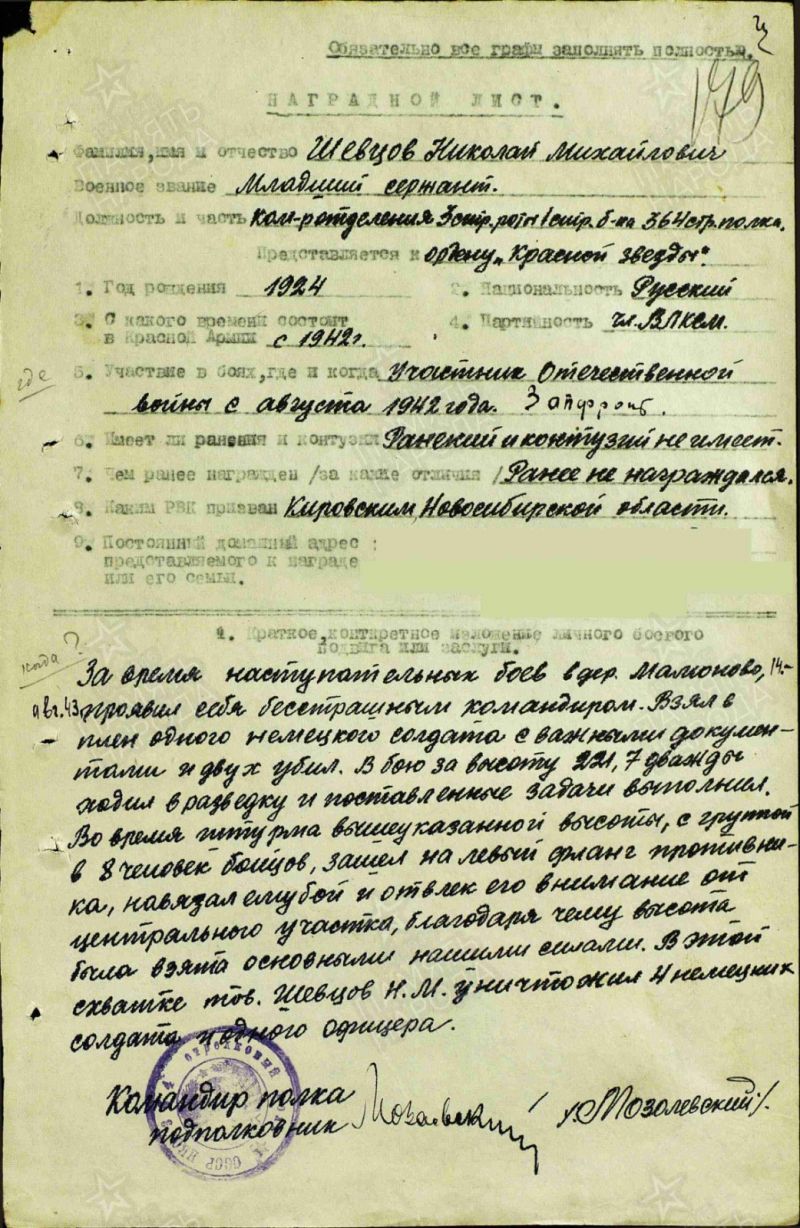 Обязательно все графы заполнять полностью.
179
НАГРАДНОЙ ЛИСТ.
Фамилия, имя и отчество Шевцов Николай Михайлович
Военное звание Младший сержант.
Должность и часть ком-р отделения 3 стр. роты 1 стр. б-на 364 стр. полка.
Представляется к ордену „Красной звезды".
1. Год рождения 1924 2. Национальность Русский
3. С какого времени состоит
в Красной Армии с 1942 г. 4. Партийность чл. ВЛКСМ.
где
5. Участие в боях, где и когда Участник Отечественной
войны с августа 1942 года. Зап фронт.
6. Имеет ли ранения и контузии Ранений и контузий не имеет.
7. Чем ранее награжден /за какие отличия/ Ранее не награждался.
8. Каким РВК призван Кировским, Новосибирской области.
9. Постоянный домашний адрес :
представляемого к награде
или его семьи.
1. Краткое, конкретное изложение личного боевого
подвига или заслуги.
когда?
За время наступательных боев в дер. Мамоново, 14.-
авг. 43, проявил себя бесстрашным командиром. Взял в
плен одного немецкого солдата с важными докумен-
тами и двух убил. В бою за высоту 221,7 дважды
ходил в разведку и поставленные задачи выполнил.
Во время штурма вышеуказанной высоты, с группой
в 8 человек бойцов, зашел на левый фланг противни-
ка, навязал ему бой и отвлек его внимание от
центрального участка, благодаря чему высота
была взята основными нашими силами. В этой
схватке тов. Шевцов Н.М. уничтожил 4 немецких
солдата и одного офицера.
Командир полка
подполковник Мозолевский /Мозолевский/.
стрелковый
СССР